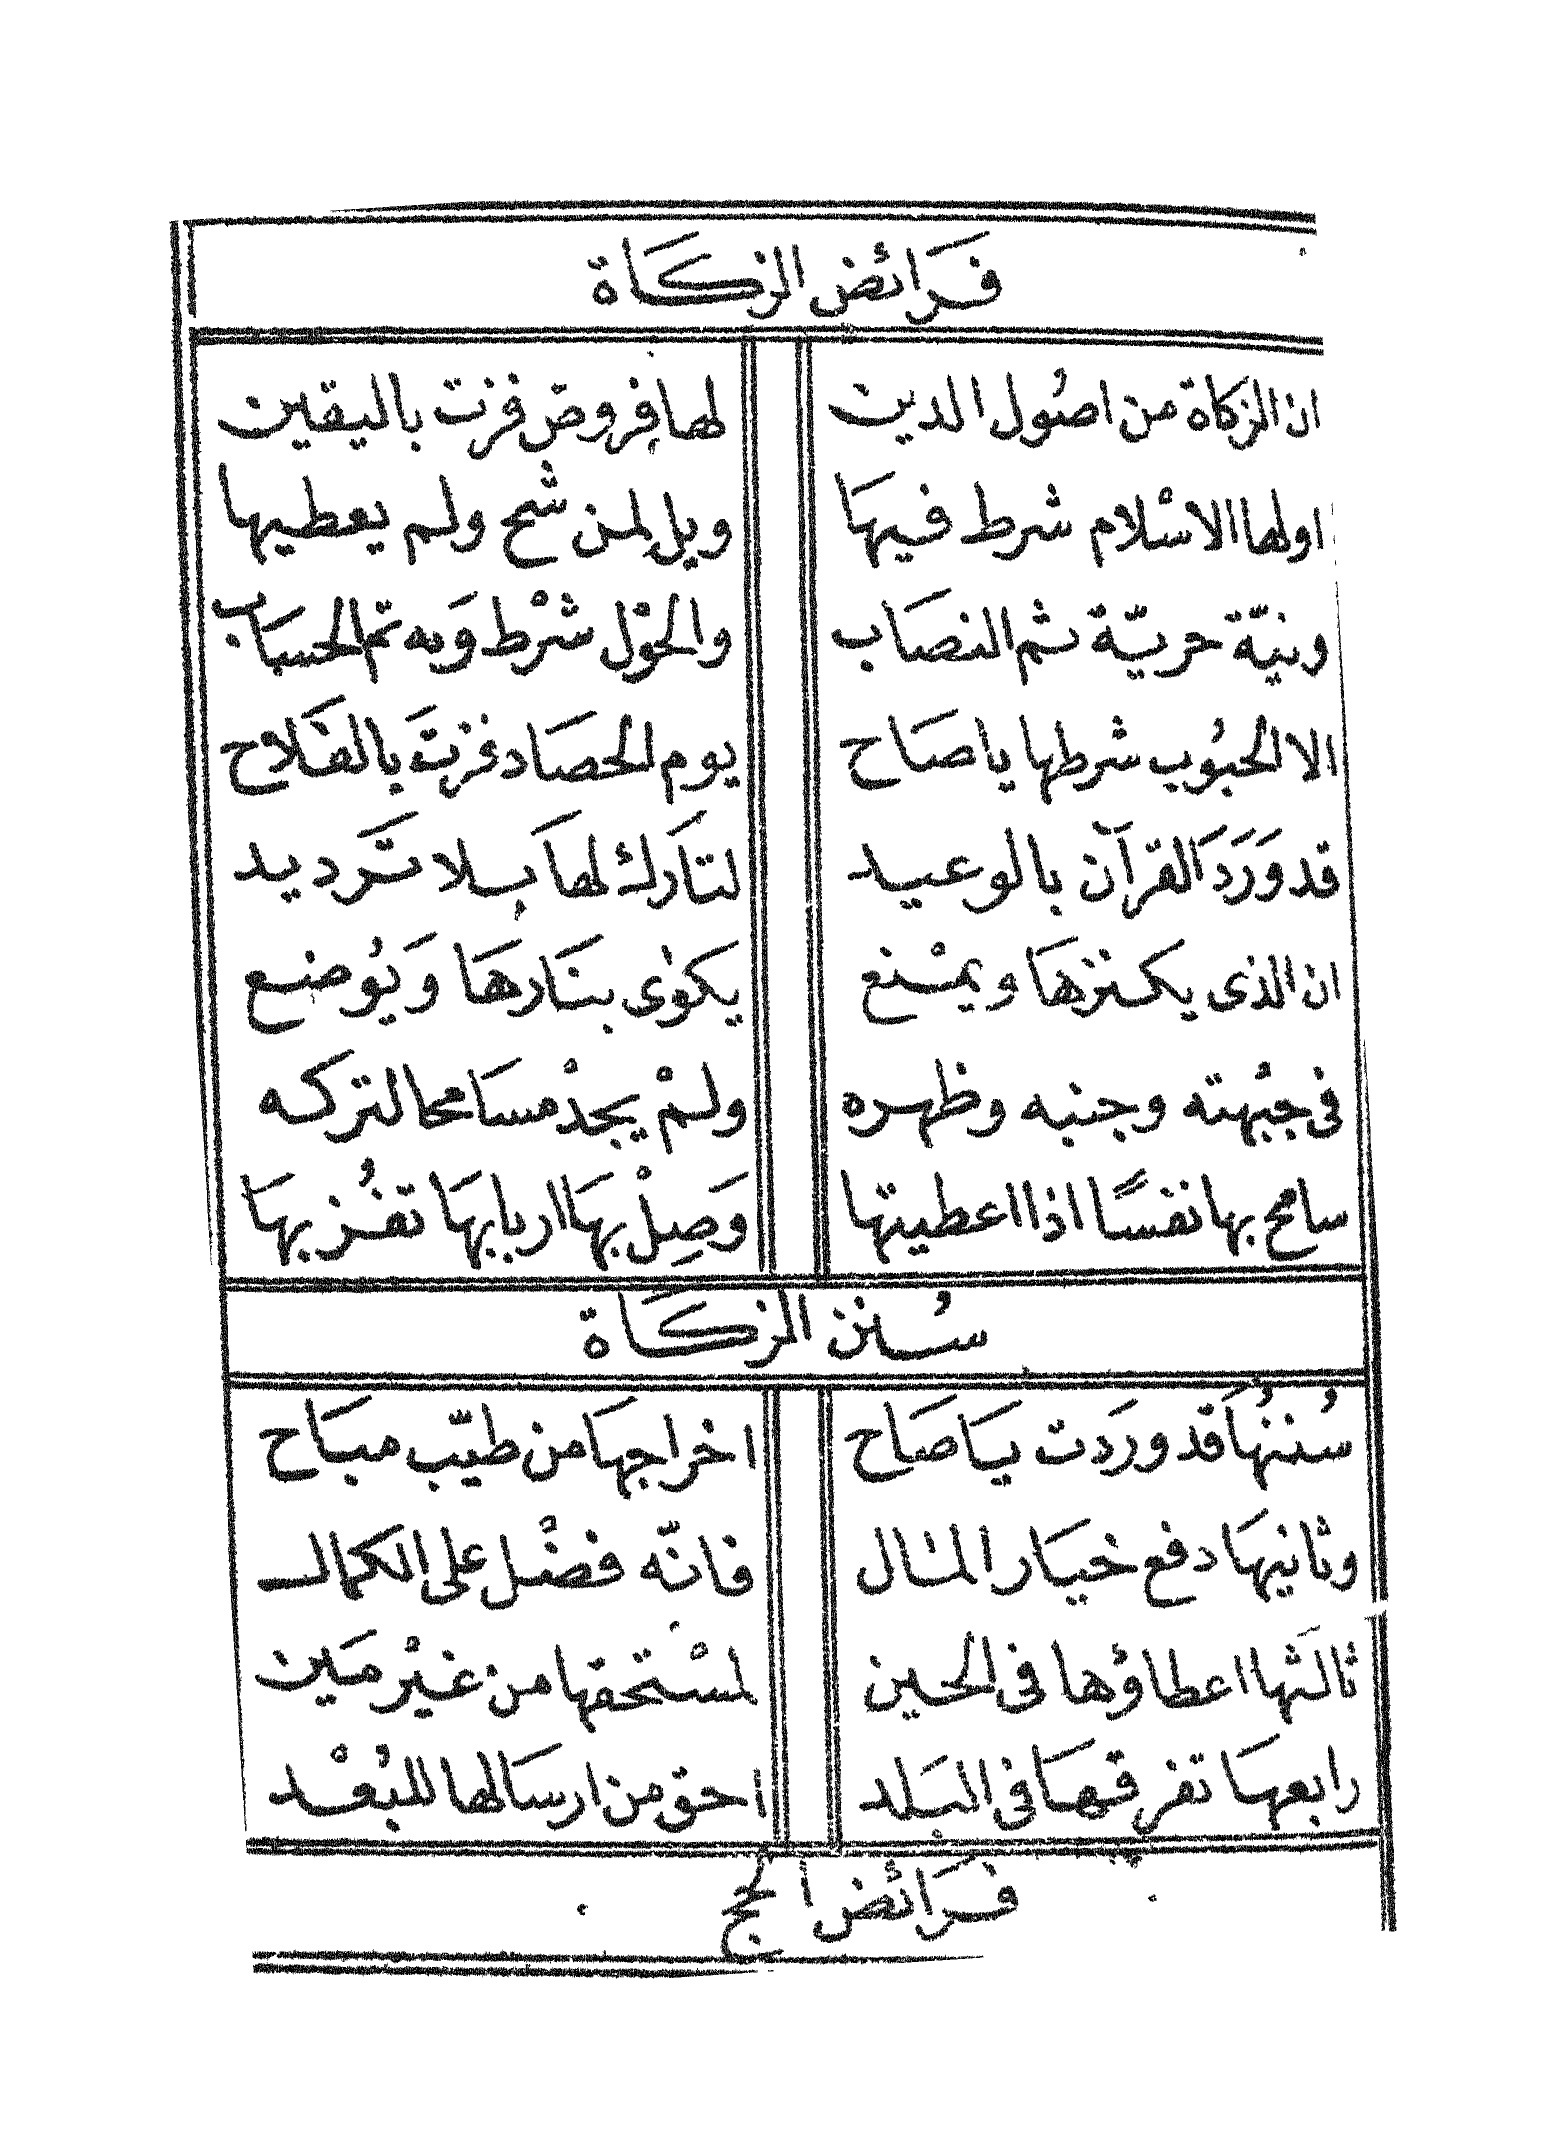 فَرَائض الزكَاة
ان الزكاة من اصُول الدين لها فِروض فزت باليقين
اولها الاسْلام شرط فيهَا ويل لِمن شُح ولم يعطيها
ونيّة حريّة ثم النصَاب والحوْل شرْط وَبه تم الحسَاب
الا الحبُوب شرطها ياصَاح يوم الحصَاد فزتَ بالفَلاح
قد وَرَدَ القرآن بالوعيد لتَارك لهَا بلا تَرديد
ان الذى يكنزهَا ويمْنع يكوٰى بنَارهَا وَيُوضع
فى جبْهته وجنبه وظهره ولمْ يجدْ مسَامحا لتركه
سامح بها نفسًا اذا اعطيتها وَصِلْ بهَا اربابهَا تفُز بهَا
سُنن الزكَاة
سُننُهَا قد وَردت يَاصَاح اخراجهَا من طيّب مبَاح
وثانيهَا دفع خيَار المال فانّه فضْل على الكمال
ثالثها اعطاؤها فى الحين لمسْتحقها من غيْر مَين
رابعهَا تفرقهَا فى البَلد احق من ارسَالها للبُعْد
فَرَائض الحج